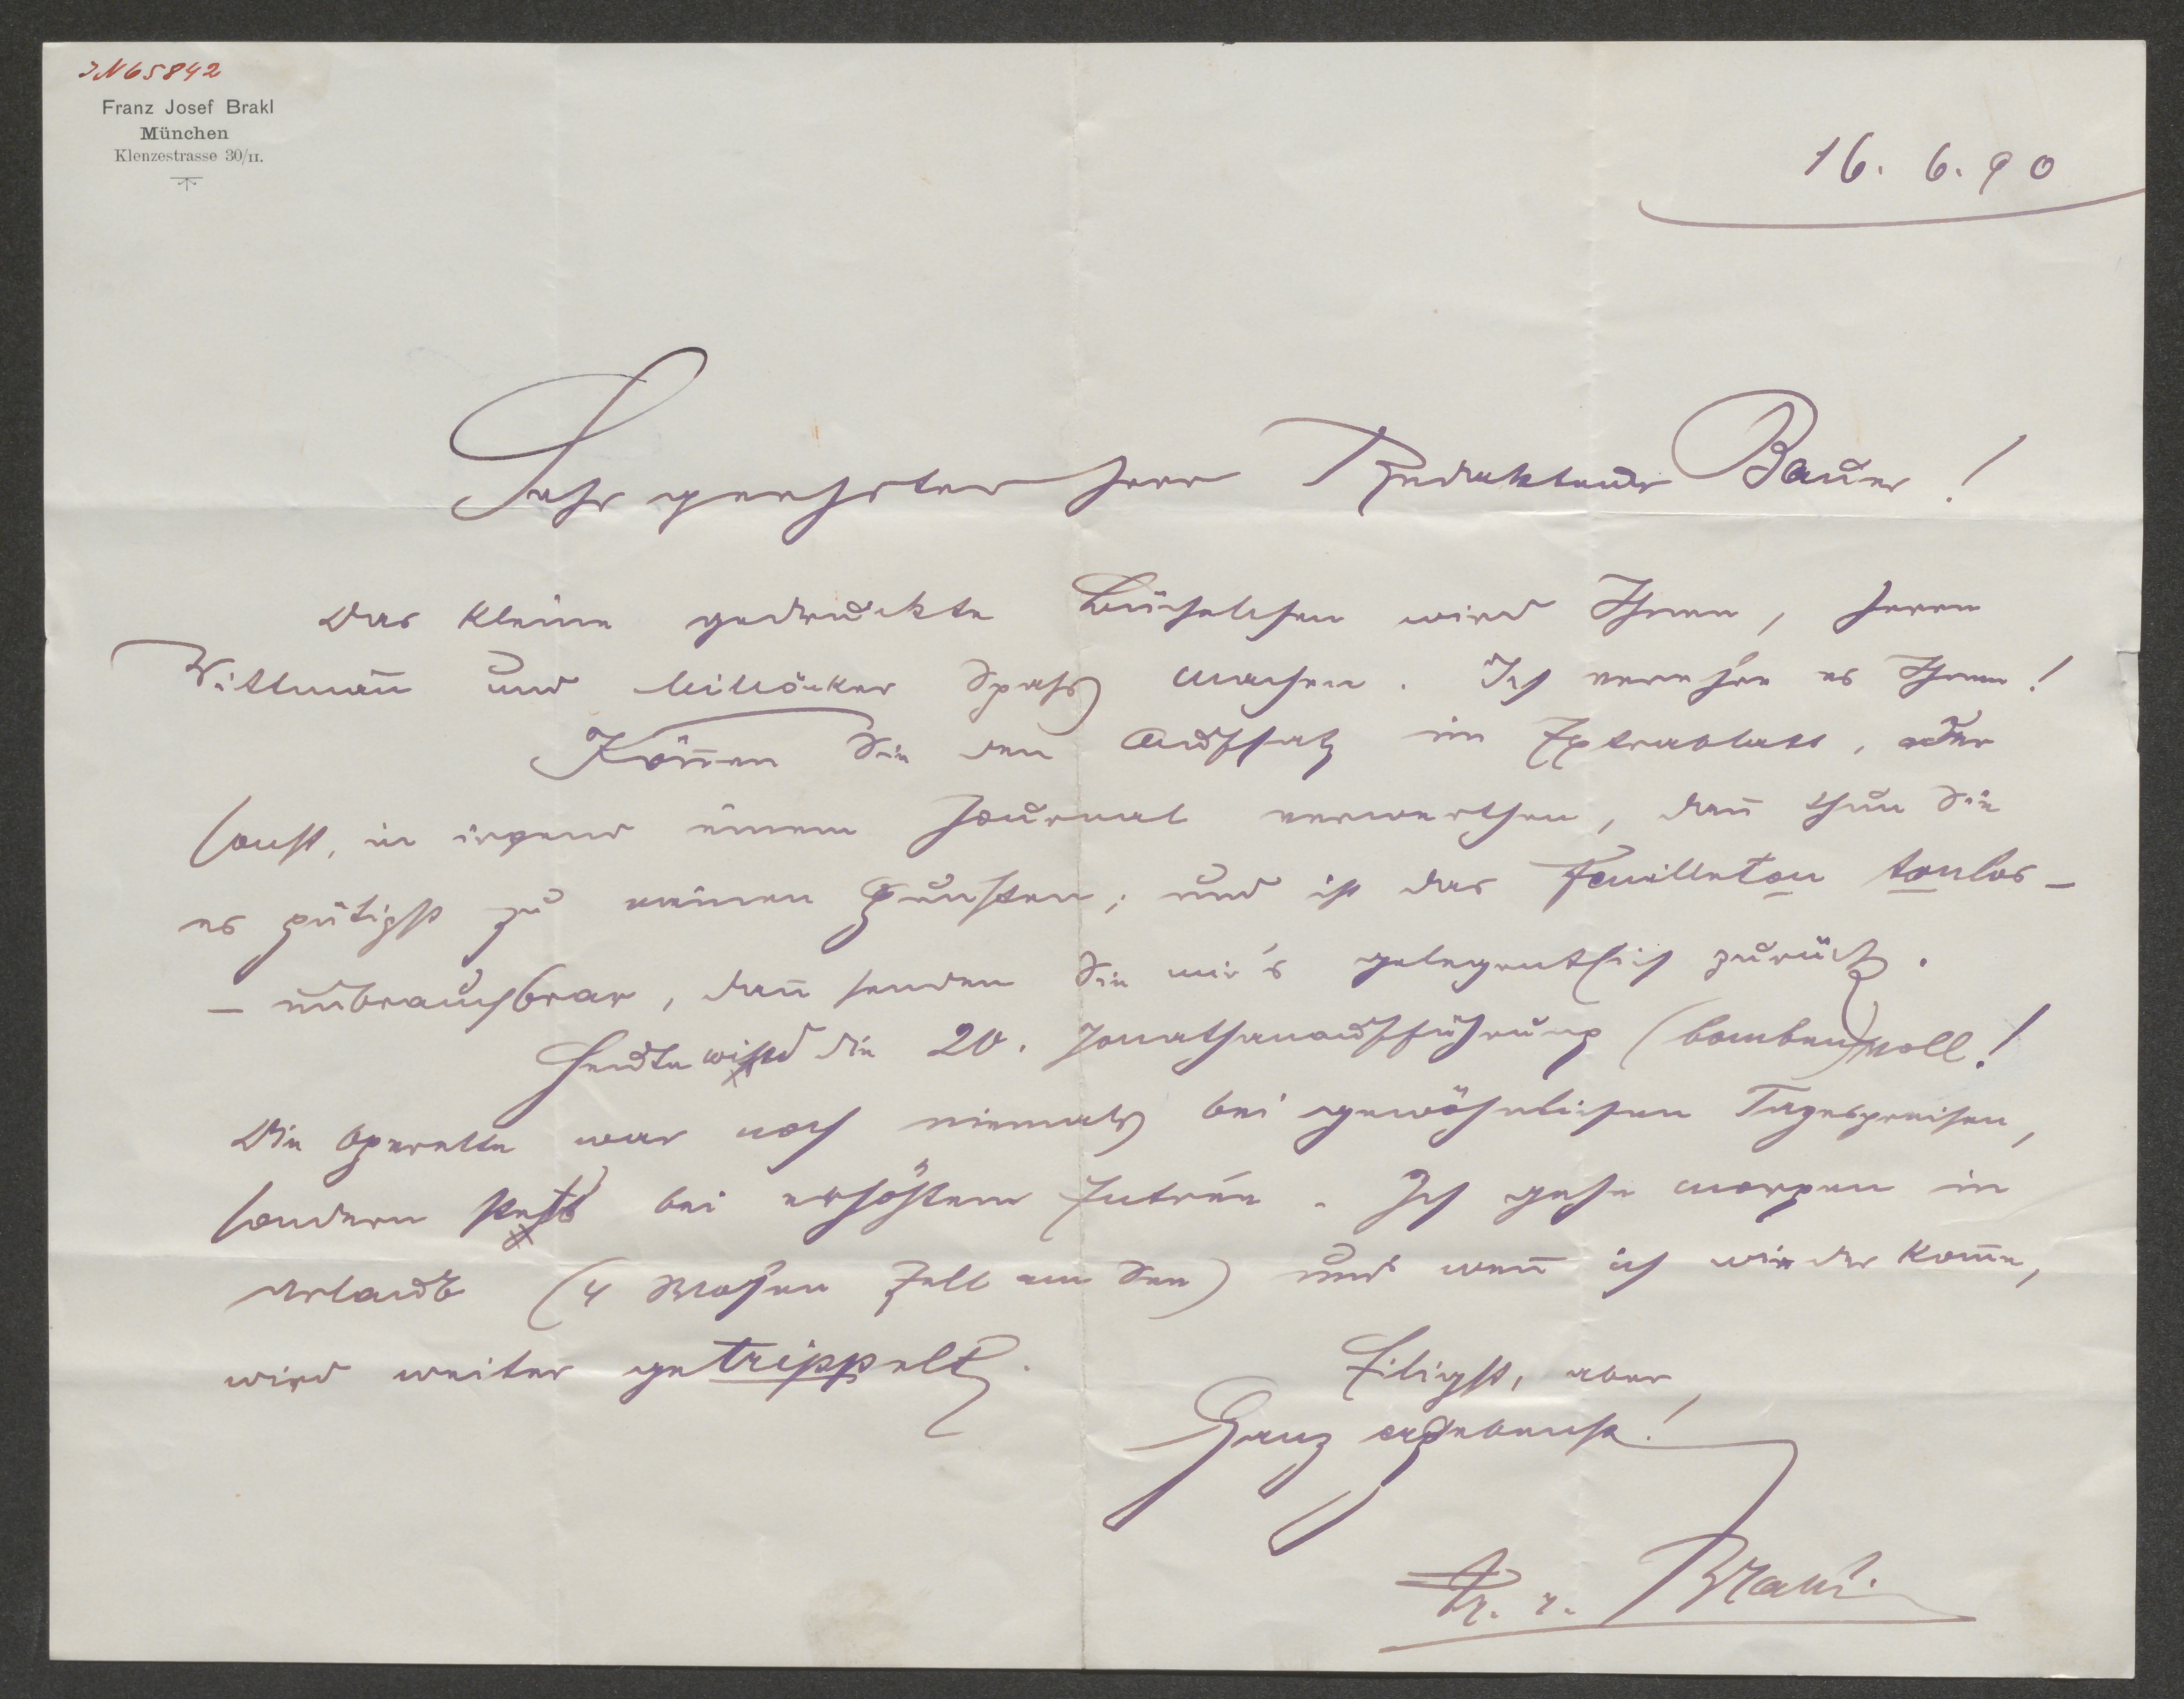 IN 65842
Franz Josef Brakl
München
Klenzestrasse 30/II.
16. 6. 90
Sehr geehrter Herr Redakteur Bauer!
Das kleine gedruckte Büchelchen wird Ihnen, Herrn
Wittmañ und Millöcker Spaß machen. Ich verehre es Ihnen!
Köñen Sie den Aufsatz im Extrablatt, oder
sonst, in irgend einem Journal verwerthen, dañ thun Sie
es gütigst zu meinen Gunsten; und ist das Feuilleton tonlos –
– unbrauchbar, dañ senden Sie mir's gelegentlich zurück.
Heute wird die 20. Jonathanaufführung (bomben)voll!
Die Operette war noch niemals bei gewöhnlichen Tagespreisen,
sondern stets bei erhöhtem Entrée. Ich gehe morgen in
Urlaub (4 Wochen Zell am See) und weñ ich wieder kom̃e,
wird weiter getrippelt.
Eiligst, aber
Ganz ergebenst!
Fr. J. Brakl.